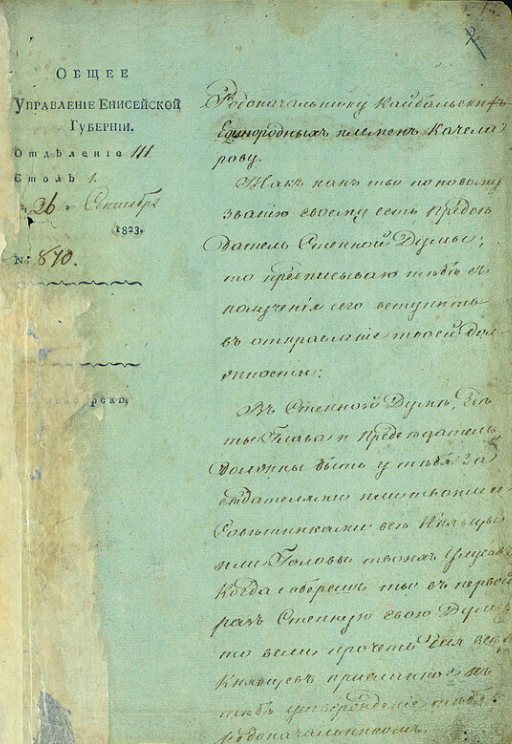 ОБЩЕЕ
УПРАВЛЕНІЕ ЕНИСЕЙСКОЙ
ГУБЕРНІИ.
Отдѣленіе III
Столъ 1.
26 Сентября
1823,
№ 870.
Родоначальнику Кайбальскихъ
Единородныхъ племенъ Качела
рову.
Такъ какъ ты по новому
званію своему есть Предсѣ
датель Степной Думы;
то предписываю тебѣ съ
полученія сего вступить
въ отправленіе твоей дол
жности:
Въ Степной Думѣ, гдѣ
ты Глава и предсѣдатель
должны быть у тебя за
сѣдателями или твоими
Совѣтниками всѣ Князцы
или Головы твоихъ улусовъ
Когда соберешь ты въ первой
разъ Степную свою Думу
то вели прочеть для всѣхъ
Князцевъ присланное къ
тебѣ утвержденіе тебя
родоначальникомъ.